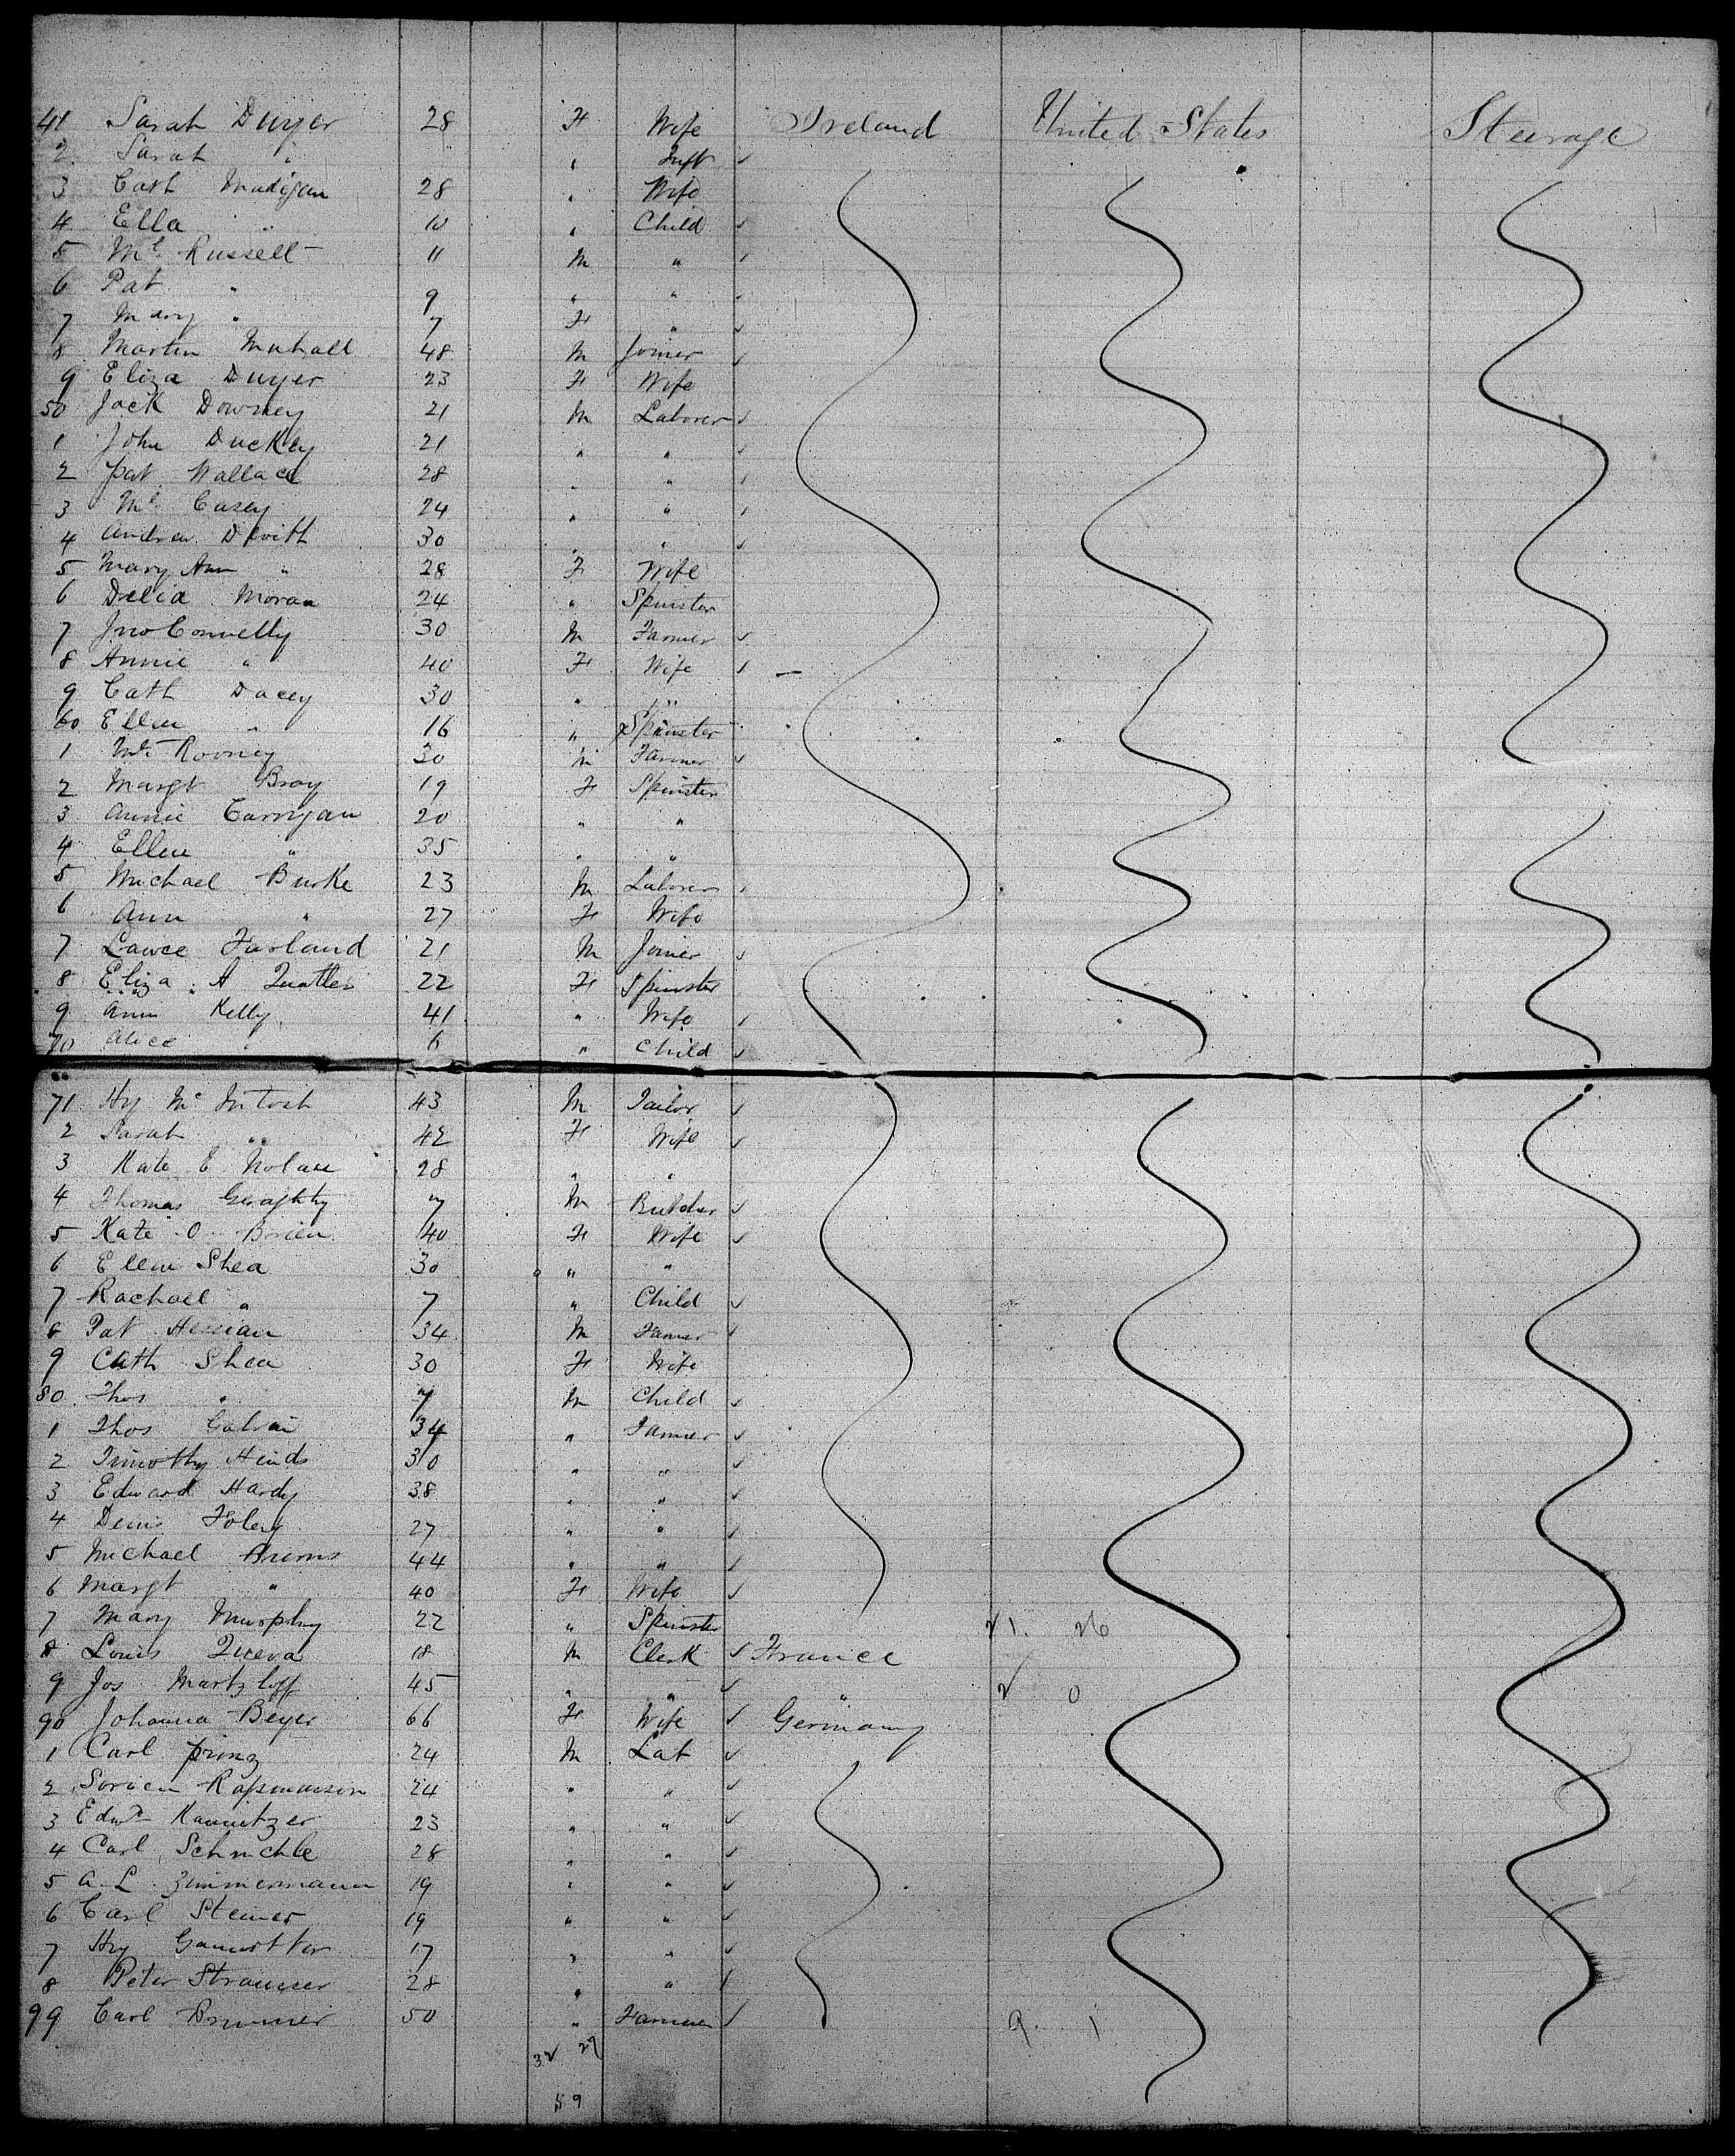 41 Sarah Dwyer 28 F Wife Ireland United States Steerage
2 Sarah " " " Inft ✓
3 Cath Madigan 28 " Wife
4 Ella " 10 " Child ✓
5 Ml Russell 11 M " ✓
6 Pat " 9 " " ✓
7 Mary " 7 F " ✓
8 Martin Muhall 48 M Joiner ✓
9 Eliza Dwyer 23 F Wife
50 Jack Downey 21 M Laborer ✓
1 John Duckley 21 " " ✓
2 Pat Wallace 28 " " ✓
3 Ml Casey 24 " " ✓
4 Andrew Devitt 30 " " ✓
5 Mary Ann " 28 F Wife
6 Delia Moran 24 " Spinster
7 Jno Connelly 30 M Farmer ✓
8 Annie " 40 F Wife ✓ —
9 Cath Dacey 30 " "
60 Ellen " 16 " Spinster
1 Ml Rooney 30 M Farmer ✓
2 Margt Bray 19 F Spinster
3 Annie Carrigan 20 " "
4 Ellen " 35 " "
5 Michael Burke 23 M Laborer ✓
6 Ann " 27 F Wife
7 Lawce Farland 21 M Joiner ✓
8 Eliza A 22 F Spinster
9 Ann Kelly 41 " Wife ✓
70 Alice " 6 " Child ✓
71 Hy Mc Intosh 43 M Tailor ✓
2 Sarah " 42 F Wife ✓
3 Kate E Nolan 28 " "
4 Thomas Geraghty 7 M Butcher ✓
5 Kate O Brien 40 F Wife ✓
6 Ellen Shea 30 " "
7 Rachael " 7 " Child ✓
8 Pat Hessian 34 M Farmer ✓
9 Cath Shea 30 F Wife
80 Thos " 7 M Child ✓
1 Thos Galvin 34 " Farmer ✓
2 Timothy Hinds 30 " " ✓
3 Edward Hardy 38 " " ✓
4 Denis Foley 27 " " ✓
5 Michael 44 " " ✓
6 Margt " 40 F Wife ✓
7 Mary Murphy 22 " Spinster 21. 26
8 Louis Queva 18 M Clerk ✓ France
9 Jos Martzloff 45 " " ✓ " 2 0
90 Johanna Beyer 66 F Wife ✓ Germany
1 Carl Prinz 24 M Lab ✓
2 Sorien Rassmusson 24 " " ✓
3 Edwd Kannitzer 23 " " ✓
4 Carl Schnichle 28 " " ✓
5 A. L. Zimmermann 19 " " ✓
6 Carl Steiner 19 " " ✓
7 Hy 17 " " ✓
8 Peter Strausser 28 " " ✓
99 Carl Brunner 50 " Farmer ✓ 9. 1
32 27
59